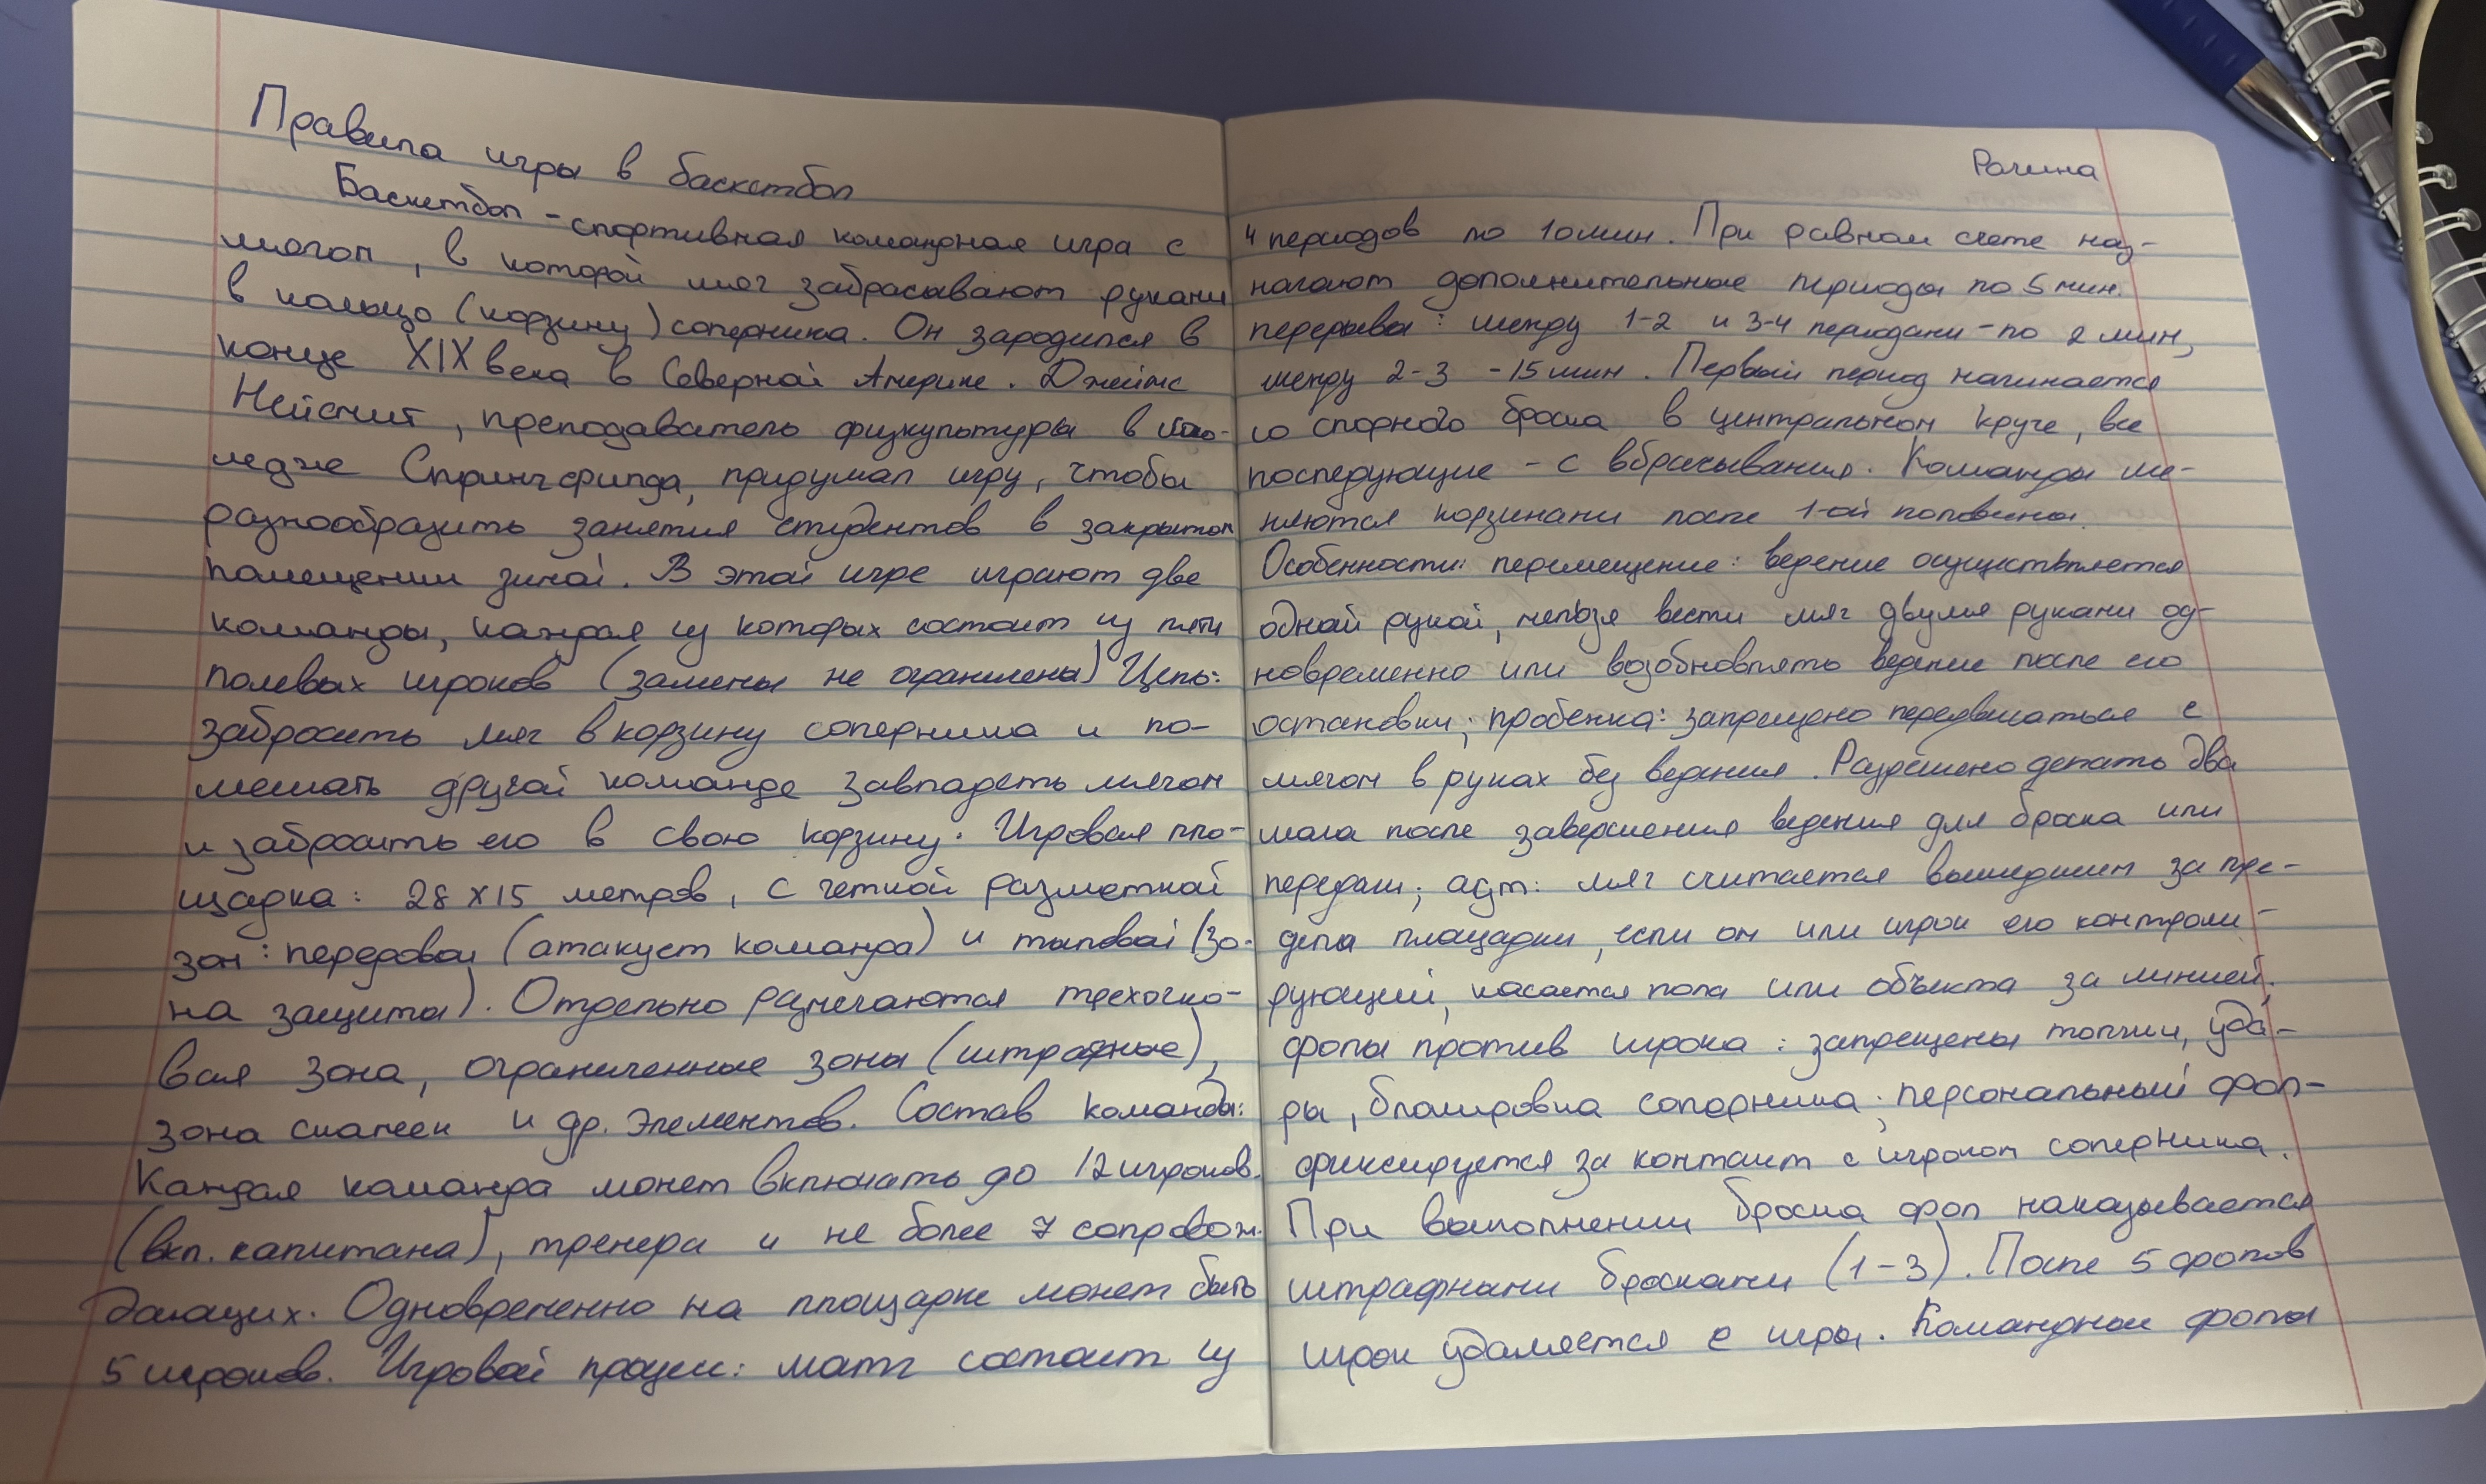 Правила игры в баскетбол
Баскетбол - спортивная командная игра с
мячом, в которой мяч забрасывают руками
в кольцо (корзину) соперника. Он зародился в
конце XIX века в Северной Америке. Джеймс
Нейсмит, преподаватель физкультуры в кол-
ледже Спрингфилда, придумал игру, чтобы
разнообразить занятия студентов в закрытом
помещении зимой. В этой игре играют две
команды, каждая из которых состоит из пяти
полевых игроков (замены не ограничены) Цель:
забросить мяч в корзину соперника и по-
мешать другой команде завладеть мячом
и забросить его в свою корзину. Игровая пло-
щадка: 28 х 15 метров, с четкой разметкой
зон: передовой (атакует команда) и тыловой (зо-
на защиты). Отдельно размечаются трехочко-
вая зона, ограниченные зоны (штрафные),
зона скамеек и др. элементов. Состав команды:
Каждая команда может включать до 12 игроков.
(вкл. капитана), тренера и не более 7 сопровож-
дающих. Одновременно на площадке может быть
5 игроков. Игровой процесс: матч состоит из
Рачина
4 периодов по 10 мин. При равном счете наз-
начают дополнительные периоды по 5 мин.
перерывы: между 1-2 и 3-4 периодами - по 2 мин,
между 2-3 - 15 мин. Первый период начинается
со спорного броска в центральном круге, все
последующие - с вбрасывания. Команды ме-
няются корзинами после 1-ой половины.
Особенности: перемещение: ведение осуществляется
одной рукой, нельзя вести мяч двумя руками од-
новременно или возобновлять ведение после его
остановки; пробежка: запрещено передвигаться с
мячом в руках без ведения. Разрешено делать два
шага после завершения ведения для броска или
передачи; аут: мяч считается вышедшим за пре-
делы площадки, если он или игрок его контроли-
рующий, касается пола или объекта за линией.
фолы против игрока: запрещены толчки, уда-
ры, блокировка соперника; персональный фол -
фиксируется за контакт с игроком соперника.
При выполнении броска фол наказывается
штрафными бросками (1-3). После 5 фолов
игрок удаляется с игры. Командные фолы